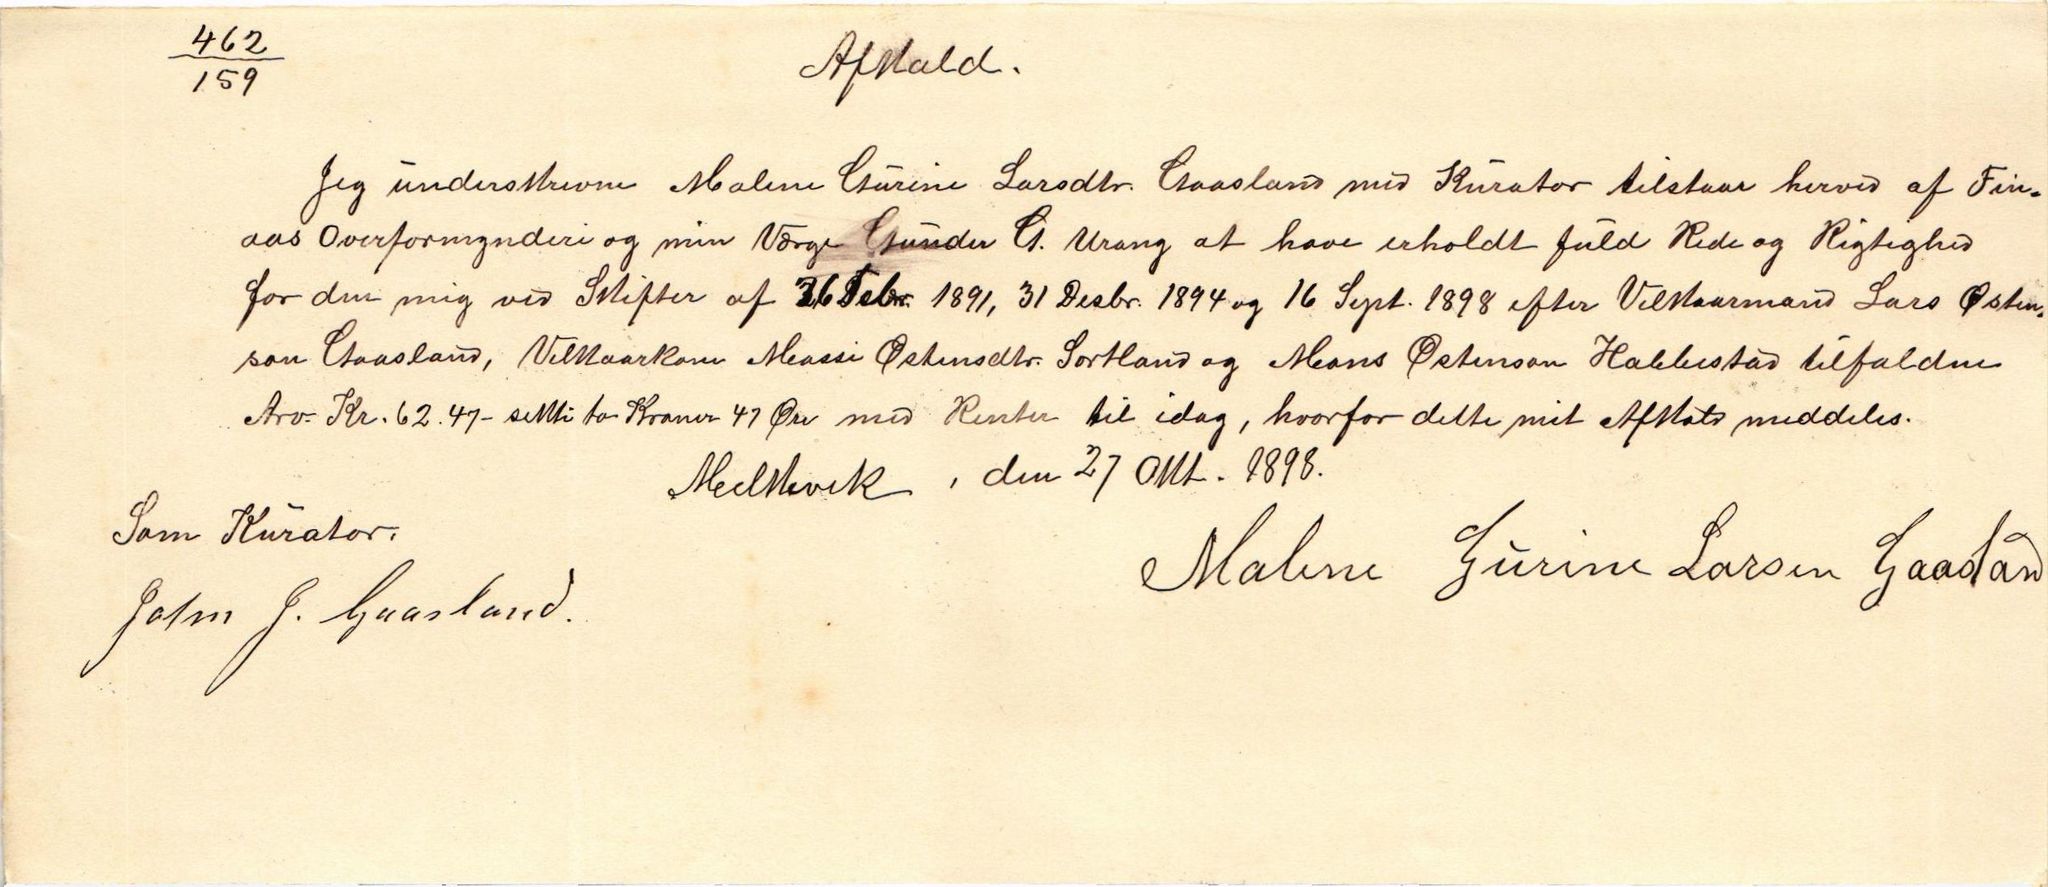 462
159
Afkald.
Jeg underskrevne Malene Gurine Larsdtr. Gaasland med Kurator tilstaar herved af Fin-
aas Overformynderi og min Værge Gunder G. Urang at have erholdt fuld Rede og Rigtighed
for den mig ved Skifter af 26 Febr. 1891, 31 Desbr. 1894 og 16 Sept. 1898 efter Velkaarmand Lars Østen-
son Gaasland, Velkaarkone Massi Østensdtr. Sortland og Mons Østenson Habbestad tilfaldne
Arv Kr. 62.47 - sekti to Kroner 47 Øre med Renter til idag, hvorfor dette mit Afkald meddeles.
Melkevik, den 27 Okt. 1898.
Som Kurator.
John J. Gaasland.
Malene Gurine Larsen Gaasland